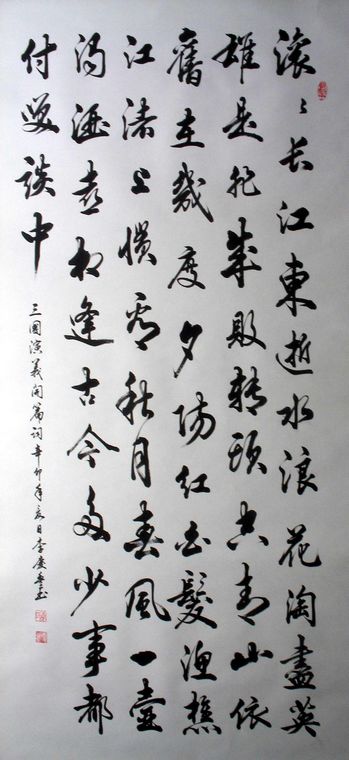 滚〻长江東逝水浪花淘盡英
雄是非成敗轉頭空青山依
舊在幾度夕陽红白髮渔樵
江渚上慣看秋月春風一壶
濁酒喜相逢古今多少事都
付笑談中
三國演義開篇词辛卯年夏日李慶